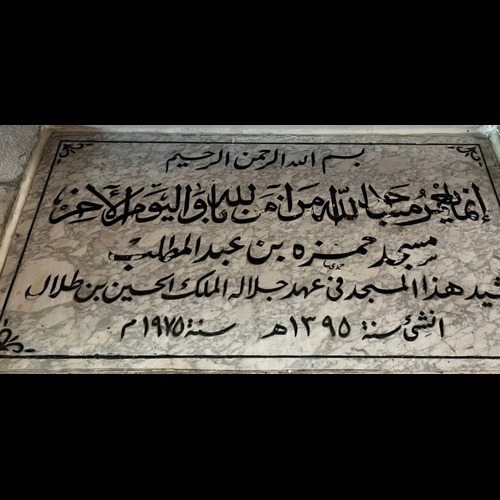 بسم الله الرحمن الرحيم
إنما يعمر مساجد الله من آمن بالله واليوم الآخر
مسجد حمزه بن عبد المطلب
شيد هذا المسجد في عهد جلالة الملك الحسين بن طلال
انشئ سنة ١٣٩٥ هـ سنة ١٩٧٥ م